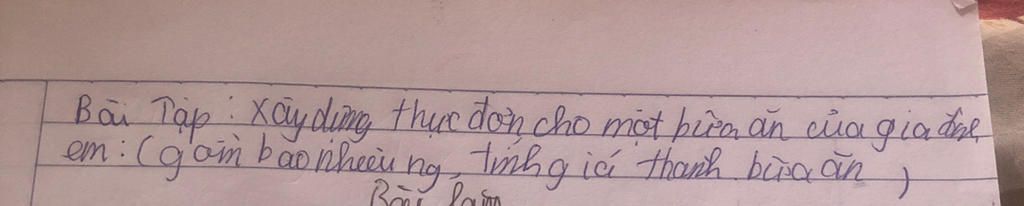 Bài Tập: Xây dựng thực đơn cho một bữa ăn của gia đình
em: (gồm bao nhiêu ng, tính giá thành bữa ăn)
Bài làm